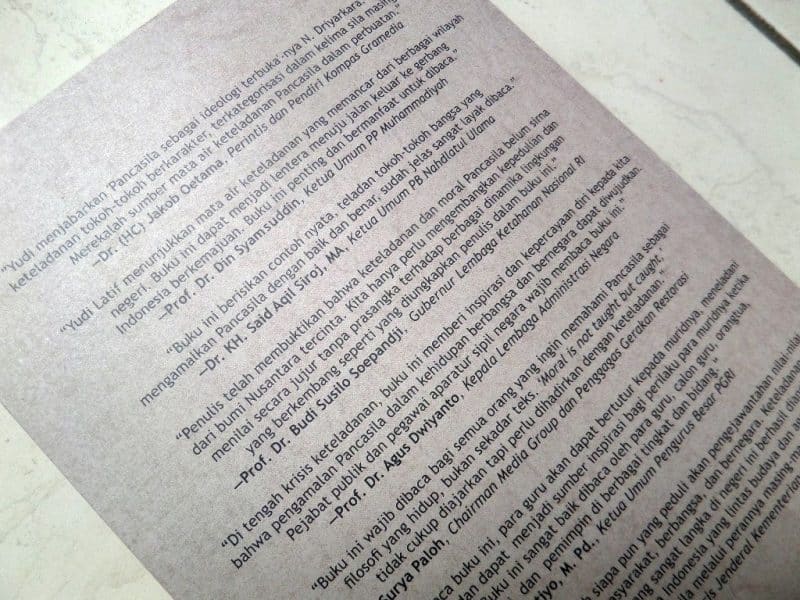 "Yudi menjabarkan 'Pancasila sebagai ideologi terbuka'-nya N. Driyarkara.
keteladanan tokoh-tokoh berkarakter, terkategorisasi dalam kelima sila masing
Merekalah sumber mata air keteladanan Pancasila dalam perbuatan."
—Dr. (HC) Jakob Oetama, Perintis dan Pendiri Kompas Gramedia
"Yudi Latif menunjukkan mata air keteladanan yang memancar dari berbagai wilayah
negeri. Buku ini dapat menjadi lentera menuju jalan keluar ke gerbang
Indonesia berkemajuan. Buku ini penting dan bermanfaat untuk dibaca."
—Prof. Dr. Din Syamsuddin, Ketua Umum PP Muhammadiyah
"Buku ini berisikan contoh nyata, teladan tokoh-tokoh bangsa yang
mengamalkan Pancasila dengan baik dan benar, sudah jelas sangat layak dibaca."
—Dr. KH. Said Aqil Siroj, MA, Ketua Umum PB Nahdlatul Ulama
"Penulis telah membuktikan bahwa keteladanan dan moral Pancasila belum sirna
dari bumi Nusantara tercinta. Kita hanya perlu mengembangkan kepedulian dan
menilai secara jujur tanpa prasangka terhadap berbagai dinamika lingkungan
yang berkembang seperti yang diungkapkan penulis dalam buku ini."
—Prof. Dr. Budi Susilo Soepandji, Gubernur Lembaga Ketahanan Nasional RI
"Di tengah krisis keteladanan, buku ini memberi inspirasi dan kepercayaan diri kepada kita
bahwa pengamalan Pancasila dalam kehidupan berbangsa dan bernegara dapat diwujudkan.
Pejabat publik dan pegawai aparatur sipil negara wajib membaca buku ini."
—Prof. Dr. Agus Dwiyanto, Kepala Lembaga Administrasi Negara
"Buku ini wajib dibaca bagi semua orang yang ingin memahami Pancasila sebagai
filosofi yang hidup, bukan sekadar teks. 'Moral is not taught but caught,'
tidak cukup diajarkan tapi perlu dihadirkan dengan keteladanan."
Surya Paloh, Chairman Media Group dan Penggagas Gerakan Restorasi
baca buku ini, para guru akan dapat bertutur kepada muridnya, meneladani
dan dapat menjadi sumber inspirasi bagi perilaku para muridnya ketika
buku ini sangat baik dibaca oleh para guru, calon guru, orangtua,
dan pemimpin di berbagai tingkat dan bidang."
M. Pd., Ketua Umum Pengurus Besar PGRI
siapa pun yang peduli akan pengejawantahan nilai-nilai
berbangsa, dan bernegara. Keteladanan
yang sangat langka di negeri ini berhasil
Indonesia yang lintas budaya dan
melalui perannya masing
Jenderal Kementerian